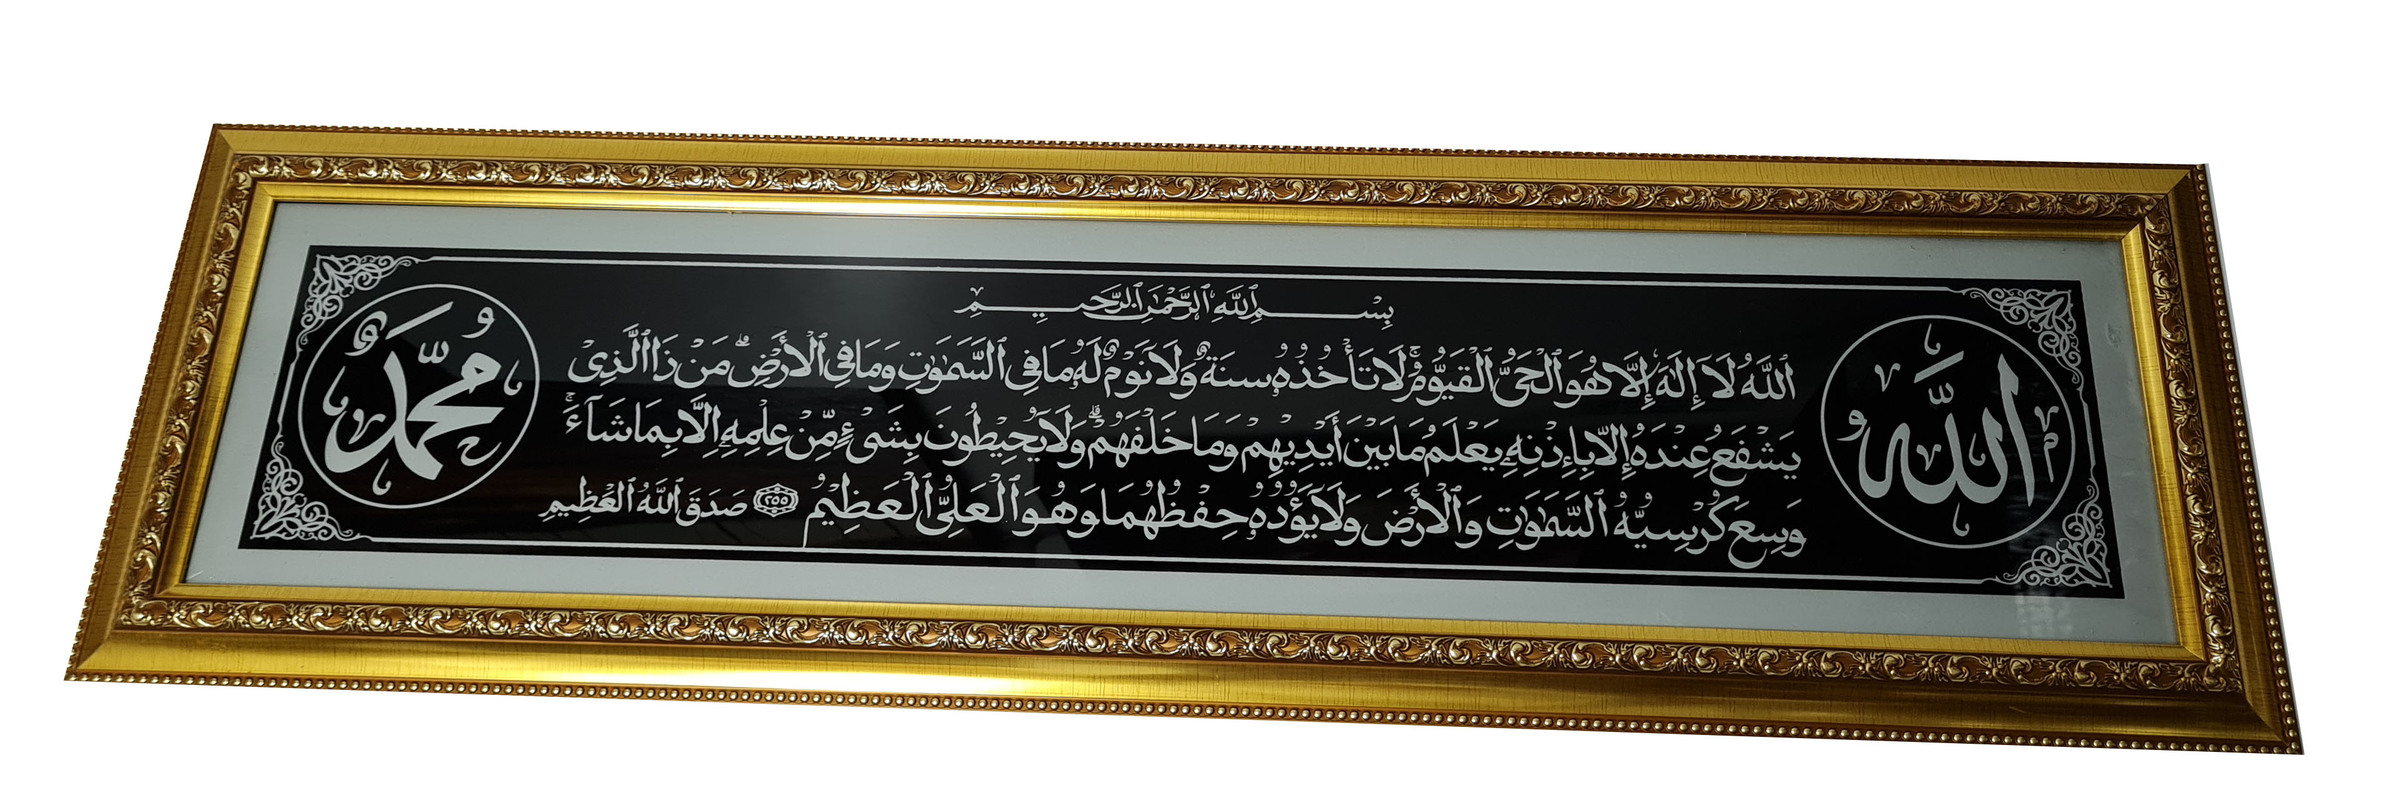 الله
بِسْمِ ٱللَّهِ ٱلرَّحْمَٰنِ ٱلرَّحِيمِ
اَللّٰهُ لَا إِلٰهَ إِلَّا هُوَ الْحَيُّ الْقَيُّوْمُ ۚ لَا تَأْخُذُهُ سِنَةٌ وَّلَا نَوْمٌ لَهُ مَا فِي السَّمٰوٰتِ وَمَا فِي الْأَرْضِ ۗ مَنْ ذَا الَّذِيْ
يَشْفَعُ عِنْدَهُ إِلَّا بِإِذْنِهِ يَعْلَمُ مَا بَيْنَ أَيْدِيْهِمْ وَمَا خَلْفَهُمْ ۗ وَلَا يُحِيْطُوْنَ بِشَيْءٍ مِّنْ عِلْمِهِ إِلَّا بِمَا شَآءَ ۚ
وَسِعَ كُرْسِيُّهُ السَّمٰوٰتِ وَالْأَرْضَ وَلَا يَؤُدُهُ حِفْظُهُمَا وَهُوَ الْعَلِيُّ الْعَظِيْمُ ٢٥٥ صَدَقَ اللّٰهُ الْعَظِيْمِ
محمد